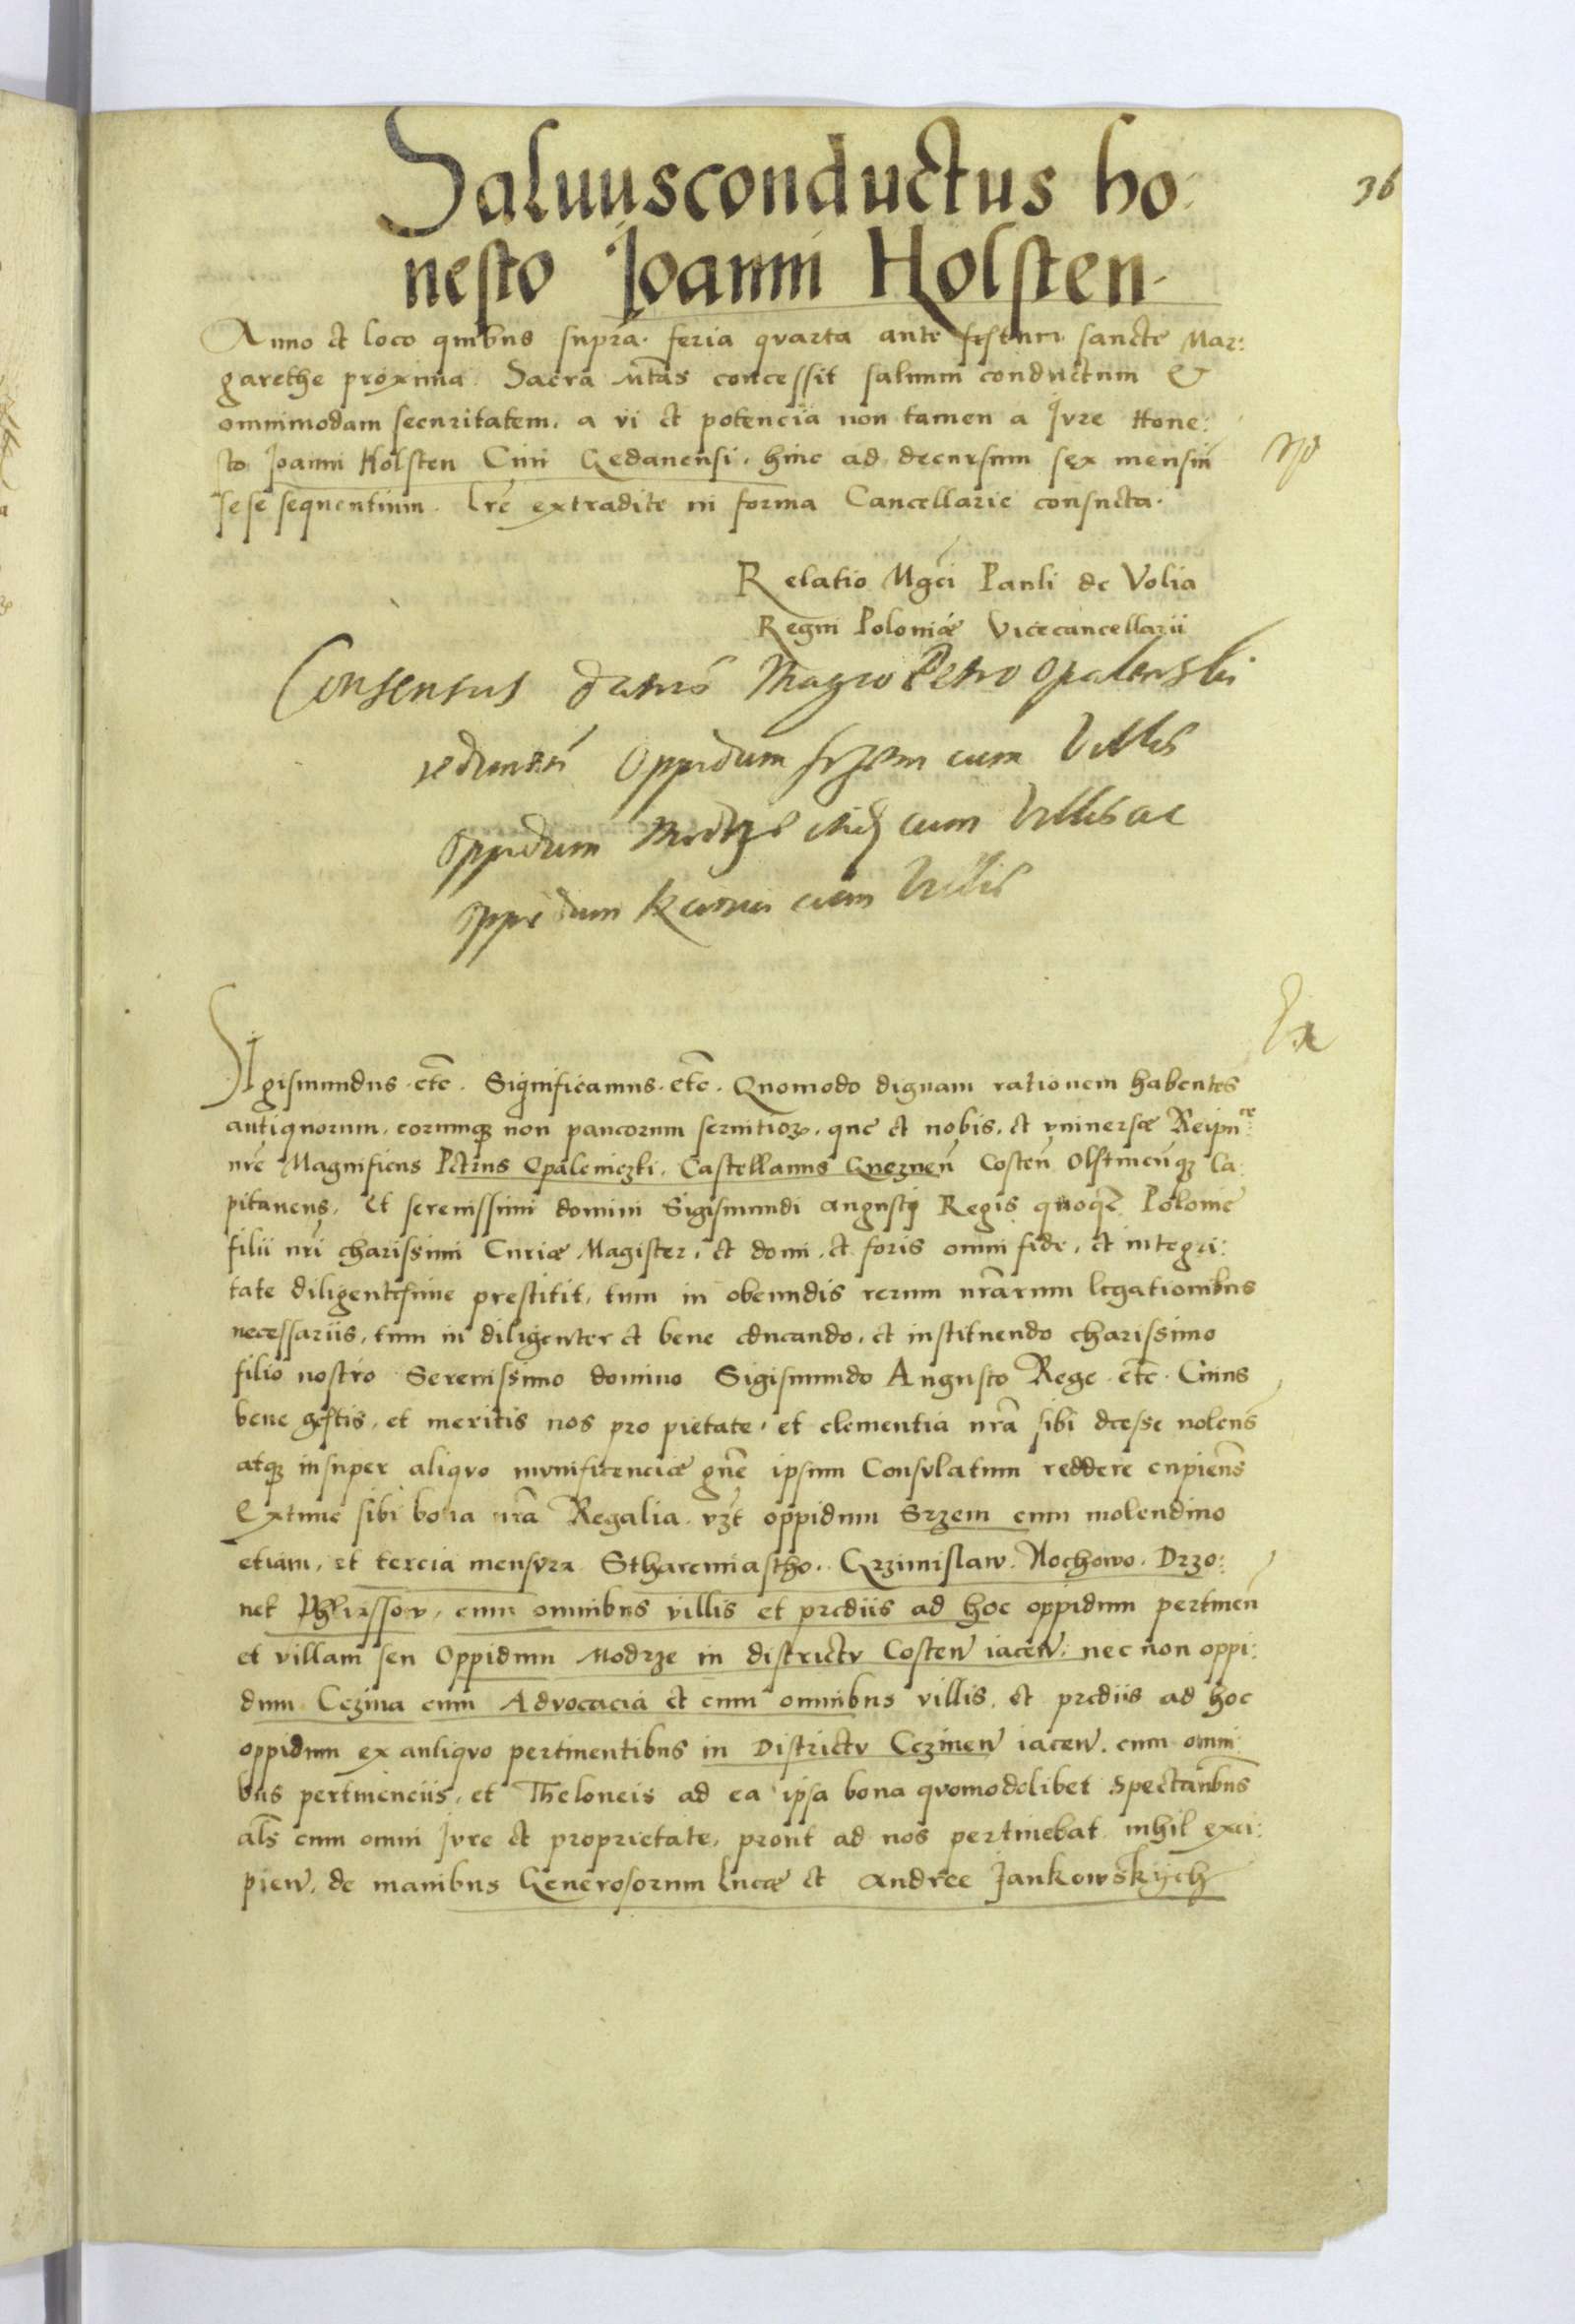 36
Saluusconductus ho-
nesto Joanni Holsten.
Anno et loco quibus supra. feria quarta ante festum sancte Mar:
garethe proxima. Sacra Mtas concessit saluum conductum &
omnimodam securitatem, a vi et potencia non tamen a Jure Hone:
sto Joanni Holsten Ciui Gedanensi. hinc ad decursum sex mensiu
sese sequentium. Lre extradite in forma Cancellarie consueta.
Relatio Mgci Pauli de Volia
Regni Poloniæ Vicecancellarii
Consensus datus Magco Petro Opalenski
redimendi Oppidum srzem cum Villis
Oppidum Modrze cum Villis ac
Oppidum Kcina cum Villis
Ex
Sigismundus. etc. Significamus. etc. Quomodo dignam rationem habentes
antiquorum, eorumq non paucorum seruitior, que et nobis, et vniuersæ Reipuce
nre Magnificus Petrus Opaleniczki, Castellanus Gneznen Costen Olstinenq Ca:
pitaneus, et serenissimi domini Sigismundi augusti Regis quoq Polonie
filii nri charissimi Curiæ Magister, et domi, et foris omni fide, et integri:
tate diligentissime prestitit, tum in obeundis rerum nrarum legationibus
necessariis, tum in diligenter et bene educando, et instituendo charissimo
filio nostro Serenissimo domino Sigismundo Augusto Rege. etc. Cuius
bene gestis, et meritis nos pro pietate, et clementia nra sibi deesse nolens
atq insuper aliquo munificenciæ gne ipsum Consulatum reddere cupiens
Extunc sibi bona nra Regalia. vzt oppidum Srzem cum molendino
etiam, et tercia mensura Stharemiastho. Grzimislaw. Nochowo. Drzo:
nek Phirssow, cum omnibus villis et prediis ad hoc oppidum pertinen
et villam seu Oppidum Modrze in districtu Costen iacen. nec non oppi:
dum Czina cum Advocacia et cum omnibus villis, et prediis ad hoc
oppidum ex antiquo pertinentibus in Districtu Czinen iacen. cum omni
bus pertinenciis, et Theloneis ad ea ipsa bona quomodolibet spectanbus
als cum omni Jure et proprietate, prout ad nos pertinebat nihil exci:
pien, de manibus Generosorum Lucæ et Andree Jankowskych